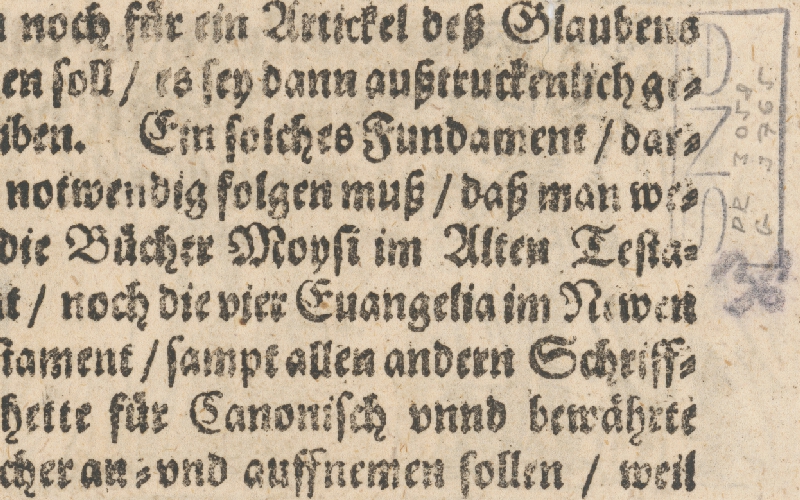 noch für ein Artickel deß Glaubens
en soll / es sey dann außtruckenlich ge⸗
iben. Ein solches Fundament / dar⸗
notwendig folgen muß / daß man we⸗
die Bücher Moysi im Alten Testa⸗
t / noch die vier Euangelia im Newen
stament / sampt allen andern Schriff⸗
hette für Canonisch vnnd bewährte
cher an⸗vnd auffnemen sollen / weil